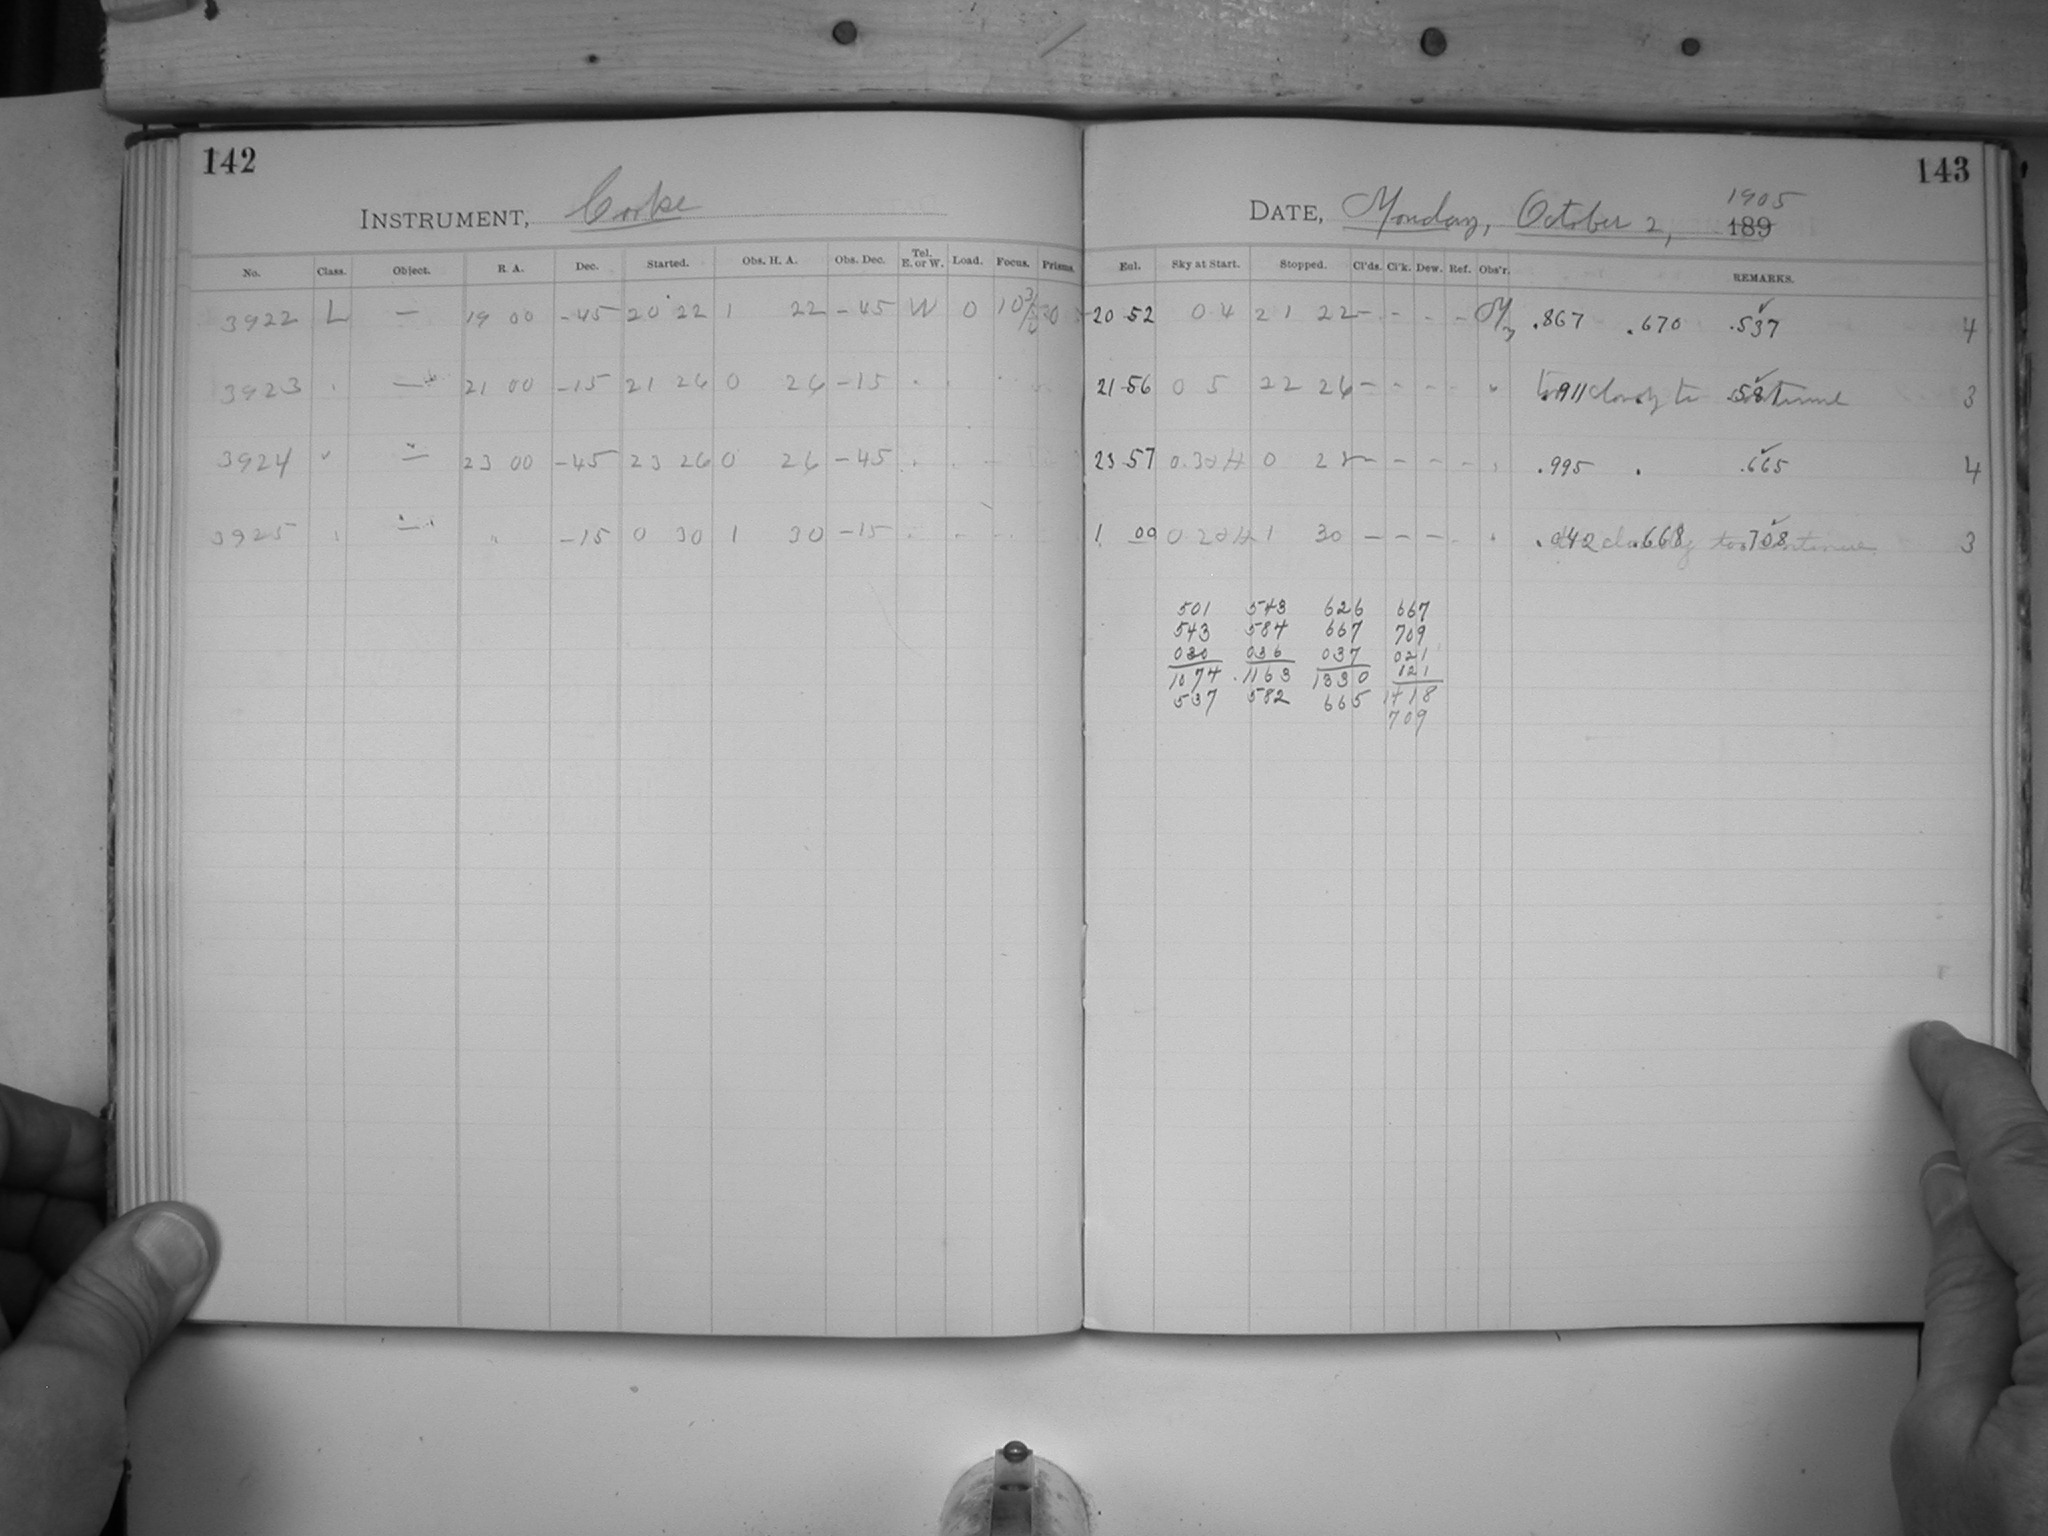 142
INSTRUMENT, Cooke
No. Class. Object. R. A. Dec. Started. Obs. H. A. Obs. Dec. Tel. E. or W. Load. Focus. Prisms.
3922 L — 19 00 -45 20 22 1 22 -45 W 0 10 3/4 0
3923 " — 21 00 -15 21 26 0 26 -15
3924 " — 23 00 -45 23 26 0 26 -45
3925 " — " -15 0 30 1 30 -15
143
DATE, Monday, October 2, 1905 189
Eql. Sky at Start. Stopped. Cl'ds. Cl'k. Dew. Ref. Obs'r. REMARKS.
20 52 0 4 21 22 - - - - .867 .670 .537 4
21 56 0 5 22 26 - - - " .911 too cloudy to continue .581 3
23 57 0 - - - - .995 . .665 4
1 09 0 1 30 - - - - .042 cloudy to continue .668 .708 3
501 543 626 667
543 584 667 709
030 036 037 021
1074 .1163 1330 121
537 582 665 1418
709